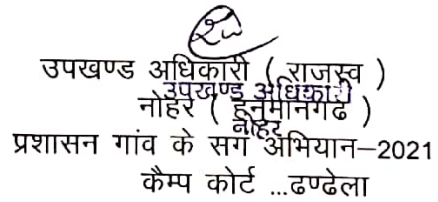 उपखण्ड अधिकारी ( राजस्व )
उपखण्ड अधिकारी
नोहर ( हनुमानगढ )
नोहर
प्रशासन गांव के सग अभियान–2021
कैम्प कोर्ट ...ढण्ढेला